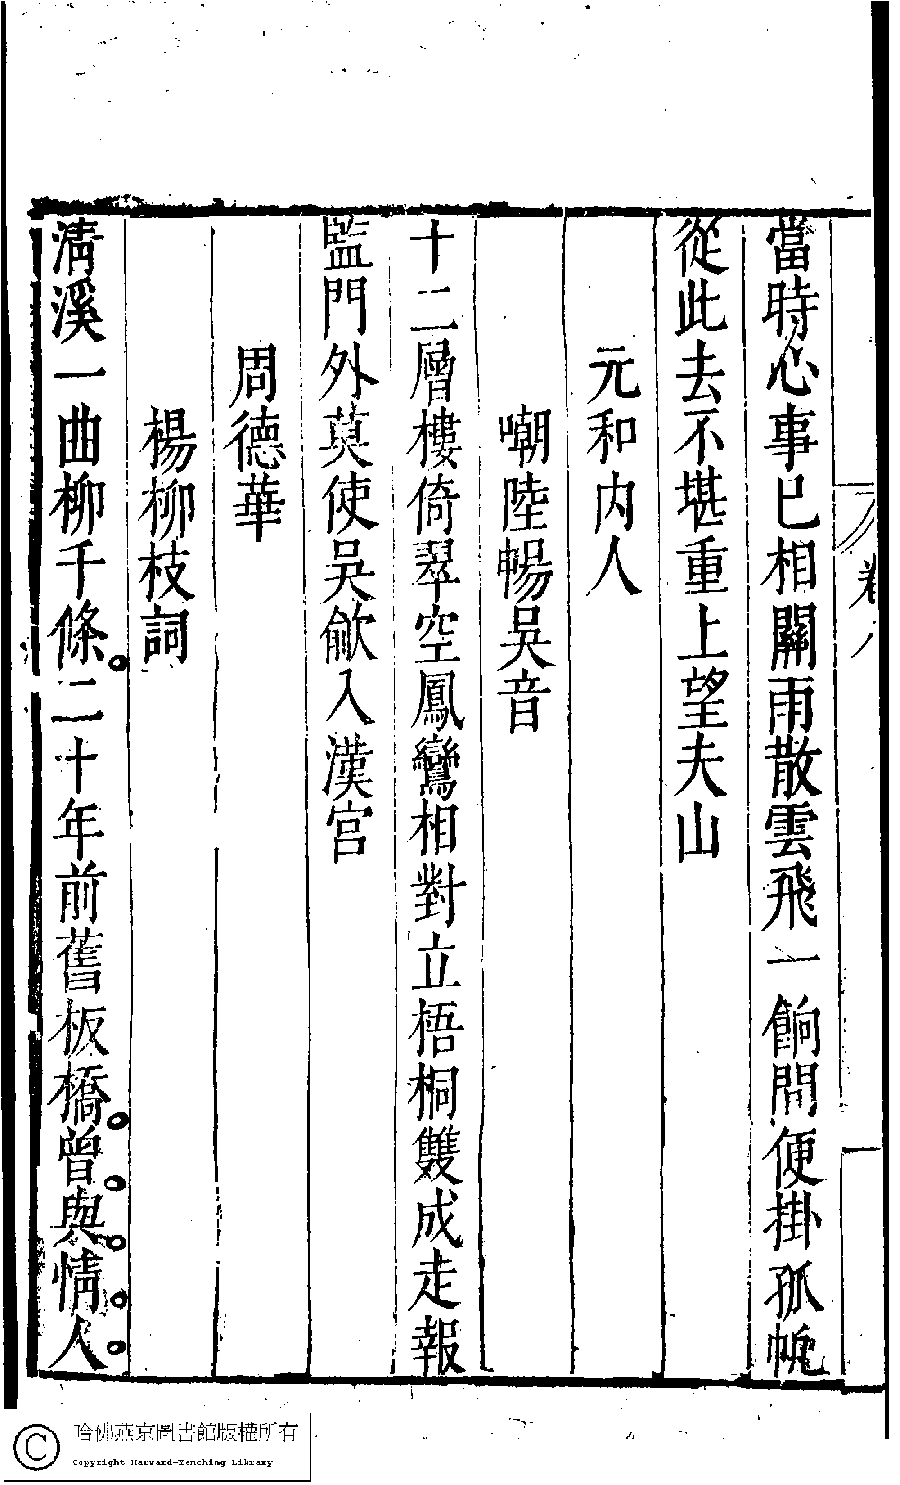 卷八
當時心事已相關雨散雲飛一餉間便掛孤帆
從此去不堪重上望夫山
元和内人
嘲陸暢吳音
十二層樓倚翠空鳳鸞相對立梧桐雙成走報
監門外莫使吳歈入漢宮
周德華
楊柳枝詞
清溪一曲柳千條二十年前舊板橋曾與情人
哈佛燕京圖書館版權所有
Copyright Harvard-Yenching Library